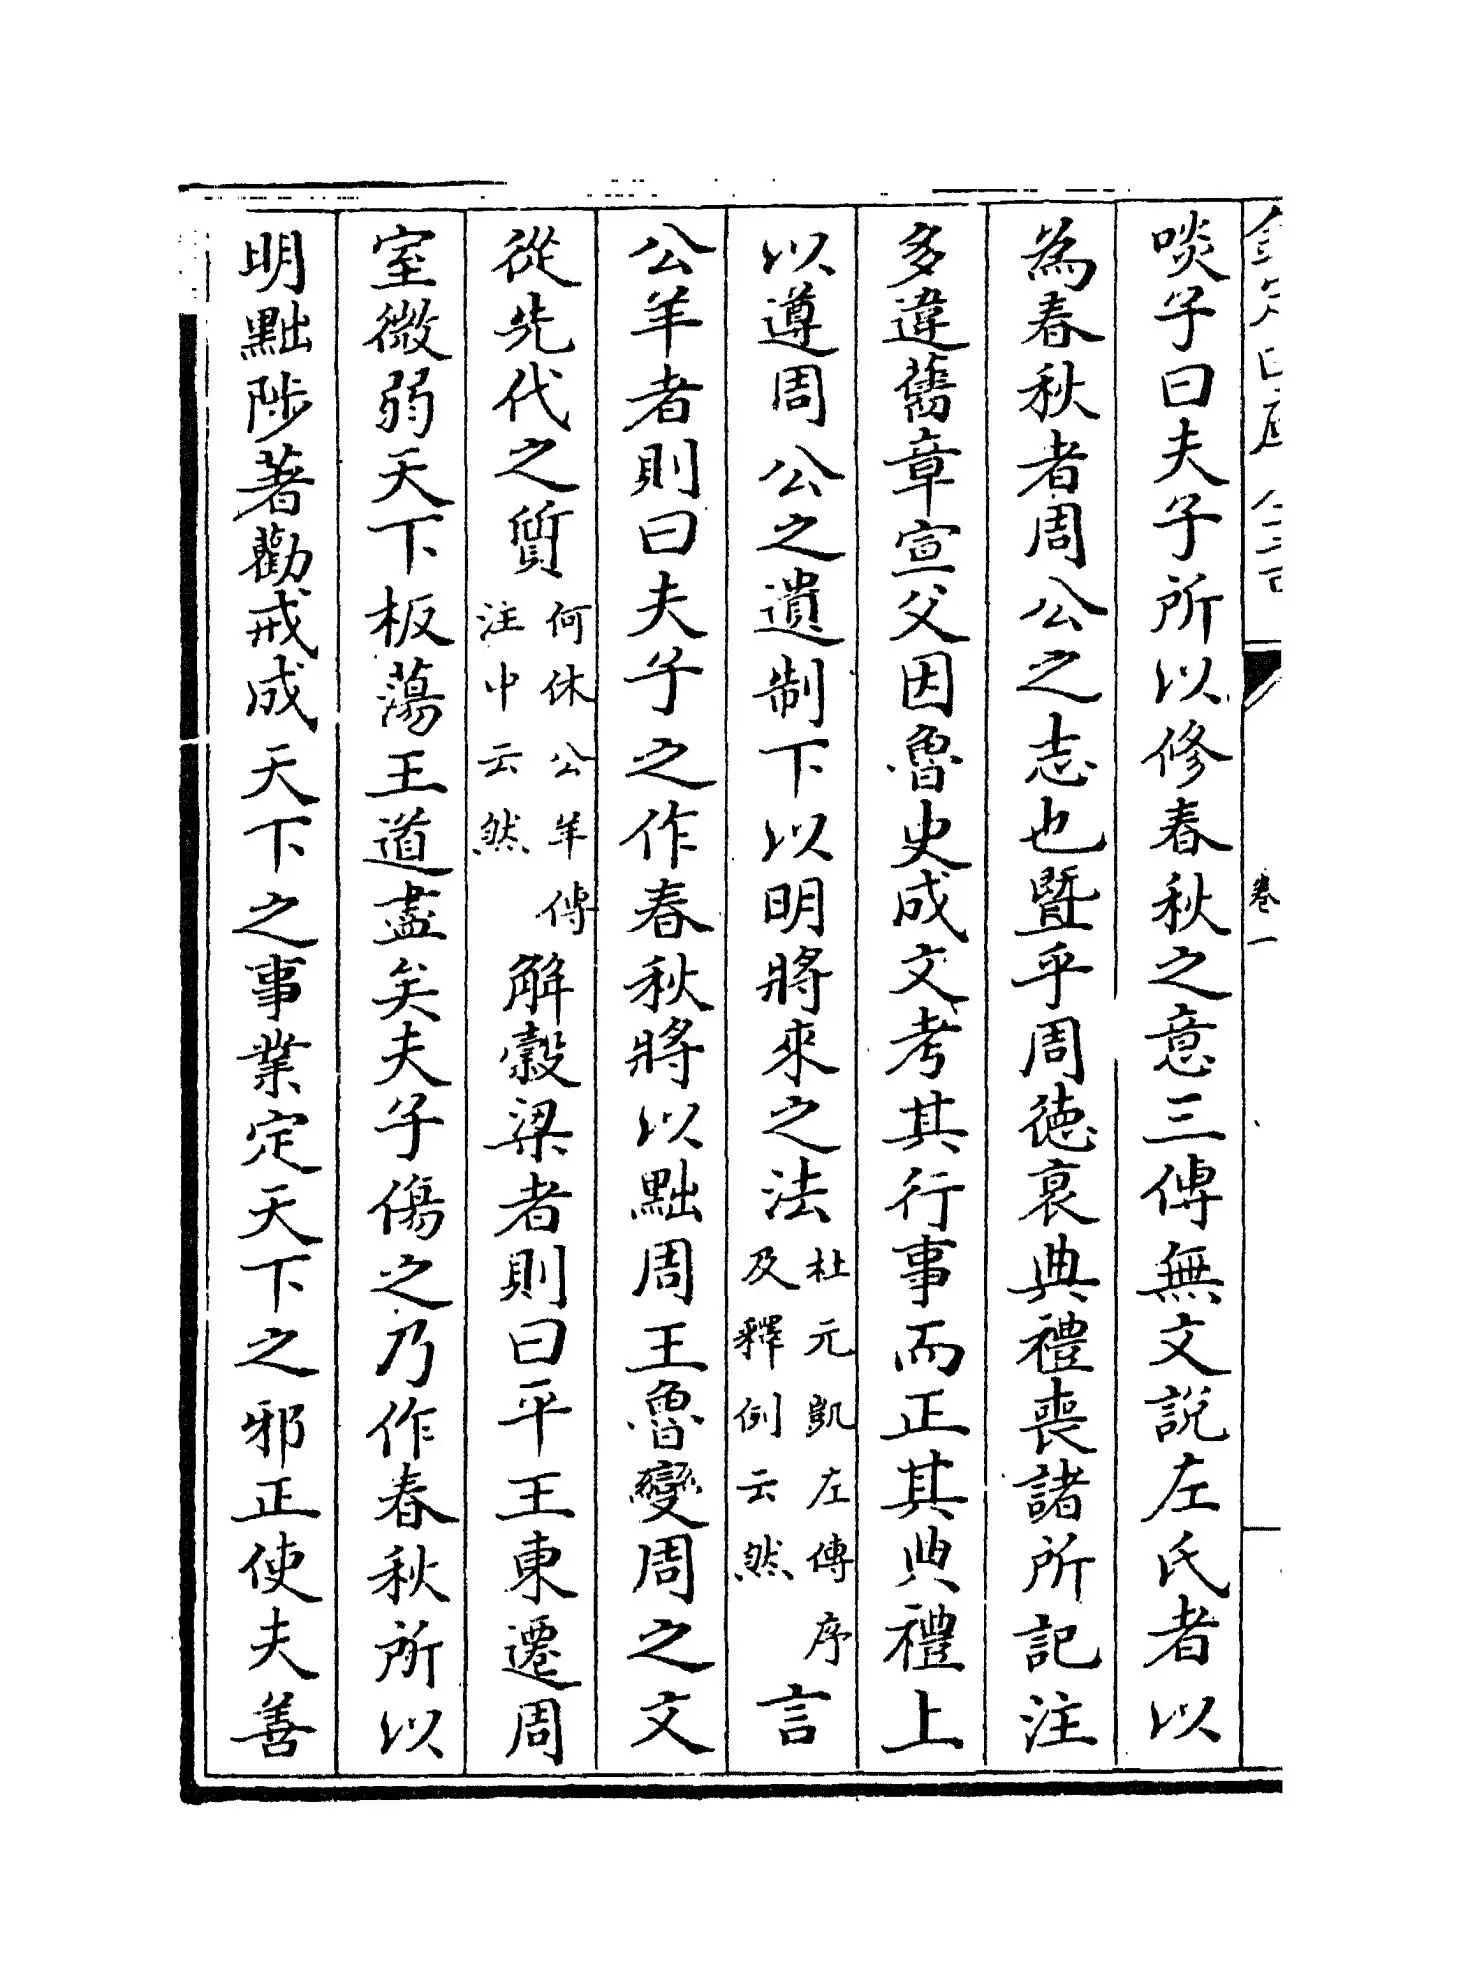 啖子曰夫子所以修春秋之意三傳無文說左氏者以
為春秋者周公之志也曁乎周徳衰典禮喪諸所記注
多違舊章宣父因魯史成文考其行事而正其典禮上
以遵周公之遺制下以明將來之法杜元凱左傳序及釋例云然言
公羊者則曰夫子之作春秋將以黜周王魯變周之文
從先代之質何休公羊傳注中云然解穀梁者則曰平王東遷周
室微弱天下板蕩王道盡矣夫子傷之乃作春秋所以
明黜陟著勸戒成天下之事業定天下之邪正使夫善
卷一